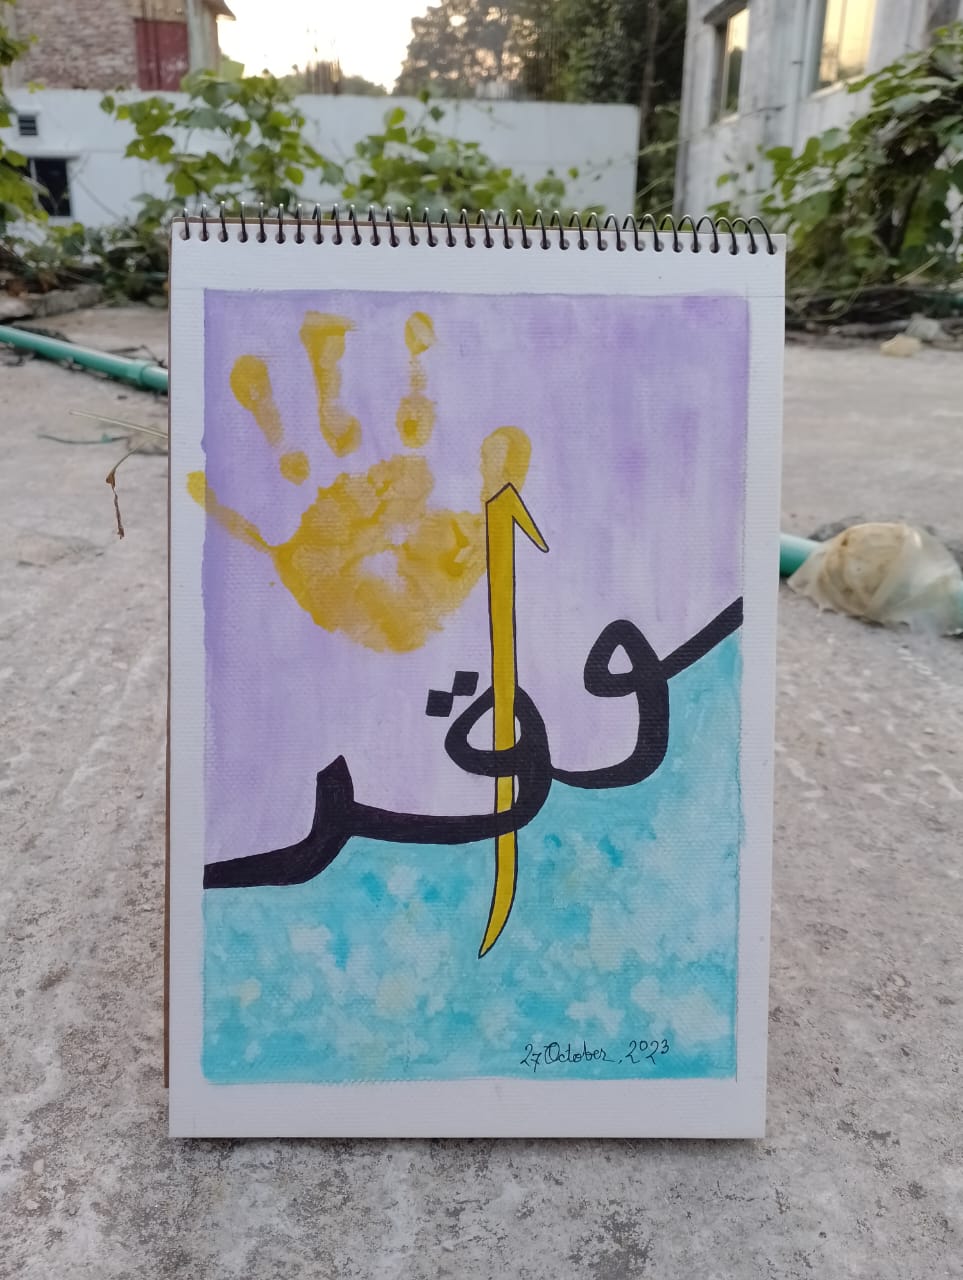 وقار
27 October, 2023